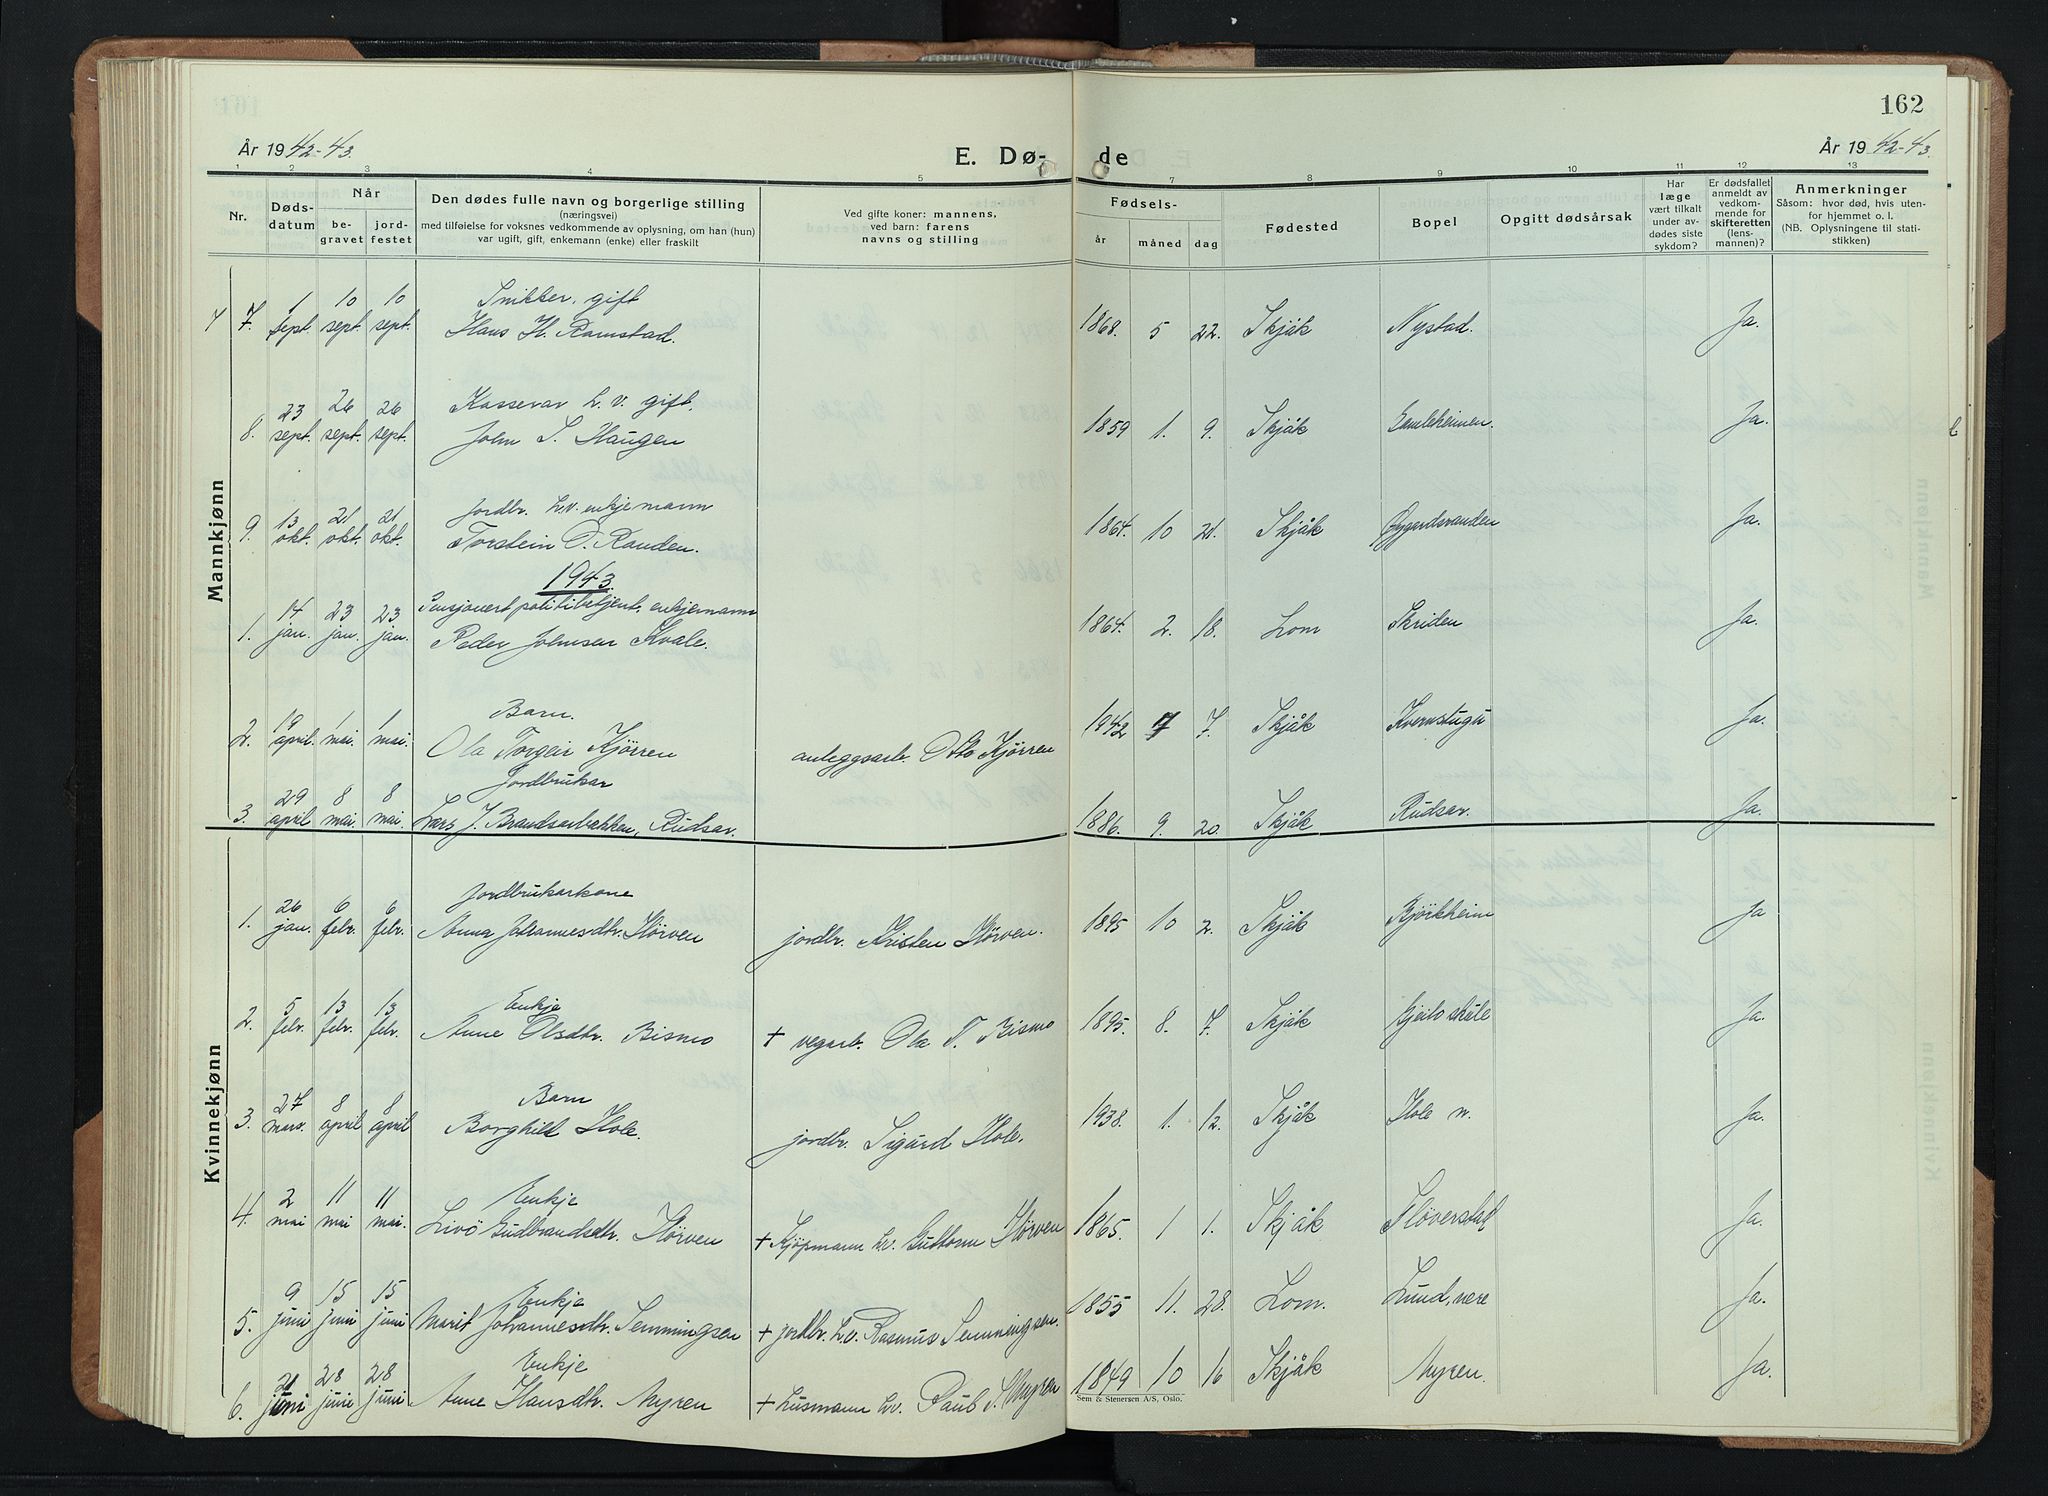 162
År 1942-43.
E. Dø- de
År 1942-43.
1 2 3 4 5 7 8 9 10 11 12 13
Nr.
Døds-
datum
Når
be-
gravet
jord-
festet
Den dødes fulle navn og borgerlige stilling
(næringsvei)
med tilføielse for voksnes vedkommende av oplysning, om han (hun)
var ugift, gift, enkemann (enke) eller fraskilt
Ved gifte koner: mannens,
ved barn: farens
navns og stilling
Fødsels-
år måned dag
Fødested
Bopel
Opgitt dødsårsak
Har
læge
vært tilkalt
under av-
dødes siste
sykdom?
Er dødsfallet
anmeldt av
vedkom-
mende for
skifteretten
(lens-
mannen)?
Anmerkninger
Såsom: hvor død, hvis uten-
for hjemmet o. l.
(NB. Oplysningene til stati-
stikken)
Mannkjønn
Snikker, gift
7. 1 sept. 10 sept. 10 sept. Hans H. Ramstad. 1868. 5 22. Skjåk Nystad. Ja.
Kassevar L. v. gift.
8. 23 sept. 26 sept. 26 sept. John S. Haugen 1859 1. 9. Skjåk Gamleheimen. Ja.
Jordbr. L.v. enkjemann
9. 13 okt. 21 okt. 21 okt. Torstein O. Randen. 1864. 10 21. Skjåk Øygardsranden Ja.
1943
Pensjonert politibetjent, enkjemann
1. 14 jan. 23 jan. 23 jan. Peder Johnsen Kvale. 1864. 2. 18. Lom Skriden Ja.
Barn.
2. 19 april. 1 mai. 1 mai. Ola Torgeir Kjörren anleggsarb. Otto Kjörren 1942 7 7. Skjåk Kvernstugu Ja.
Jordbrukar
3. 29 april 8 mai. 8 mai. Lars J. Brandsarbekken, Rudsar. 1886. 9. 20. Skjåk Rudsar. Ja.
Kvinnekjønn
Jordbrukarkone
1. 26 jan. 6 febr. 6 febr. Anna Johannesdtr. Hörven jordbr. Kristen Hörven. 1895 10 2. Skjåk Bjørkheim Ja
Enkje
2. 5 febr. 13 febr. 13 febr. Anne Olsdtr. Bismo + vegarb. Ola T. Bismo 1895. 8. 7. Skjåk Gjeiloskåle Ja.
Barn
3. 27 mars. 8 april 8 april Borghild Hole. jordbr. Sigurd Hole. 1938. 1. 12. Skjåk Hole n. Ja.
Enkje
4. 2 mai 11 mai 11 mai. Livö Gudbrandsdtr. Hörven + Kjöpmann Lv. Guttorm Hörven 1865. 1 1. Skjåk Fløverstad Ja.
Enkje
5. 9 juni 15 juni 15 juni Marit Johannesdtr. Semmingsen + jordbr. L.v. Rasmus Semmingsen. 1855 11. 28. Lom. Lund, nere Ja.
Enkje
6. 21 juni 28 juni 28 juni Anne Hansdtr. Myren + Husmann Lv. Paul S. Myren 1849 10 16 Skjåk Myren. Ja.
Sem & Stenersen A/S, Oslo.